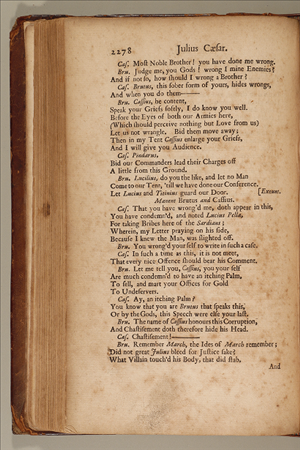 2278 Julius Cæsar.
Cas. Most Noble Brother! you have done me wrong.
Bru. Judge me, you Gods! wrong I mine Enemies?
And if not so, how should I wrong a Brother?
Cas. Brutus, this sober form of yours, hides wrongs,
And when you do them———
Bru. Cassius, be content,
Speak your Griefs softly, I do know you well.
Before the Eyes of both our Armies here,
(Which should perceive nothing but Love from us)
Let us not wrangle. Bid them move away;
Then in my Tent Cassius enlarge your Griefs,
And I will give you Audience.
Cas. Pindarus,
Bid our Commanders lead their Charges off
A little from this Ground.
Bru. Lucilius, do you the like, and let no Man
Come to our Tent, 'till we have done our Conference.
Let Lucius and Titinius guard our Door. [Exeunt.
Manent Brutus and Cassius.
Cas. That you have wrong'd me, doth appear in this,
You have condemn'd, and noted Lucius Pella,
For taking Bribes here of the Sardians;
Wherein, my Letter praying on his side,
Because I knew the Man, was slighted off.
Bru. You wrong'd your self to write in such a case.
Cas. In such a time as this, it is not meet,
That every nice Offence should bear his Comment.
Bru. Let me tell you, Cassius, you your self
Are much condemn'd to have an itching Palm,
To sell, and mart your Offices for Gold
To Undeservers.
Cas. Ay, an itching Palm?
You know that you are Brutus that speaks this,
Or by the Gods, this Speech were else your last.
Bru. The name of Cassius honours this Corruption,
And Chastisement doth therefore hide his Head.
Cas. Chastisement!———
Bru. Remember March, the Ides of March remember;
Did not great Julius bleed for Justice sake?
What Villain touch'd his Body, that did stab,
And